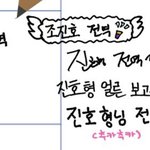 조진호 전역
진호 전역
역
진호형 얼른 보고
진호형님 전
(축카축카)